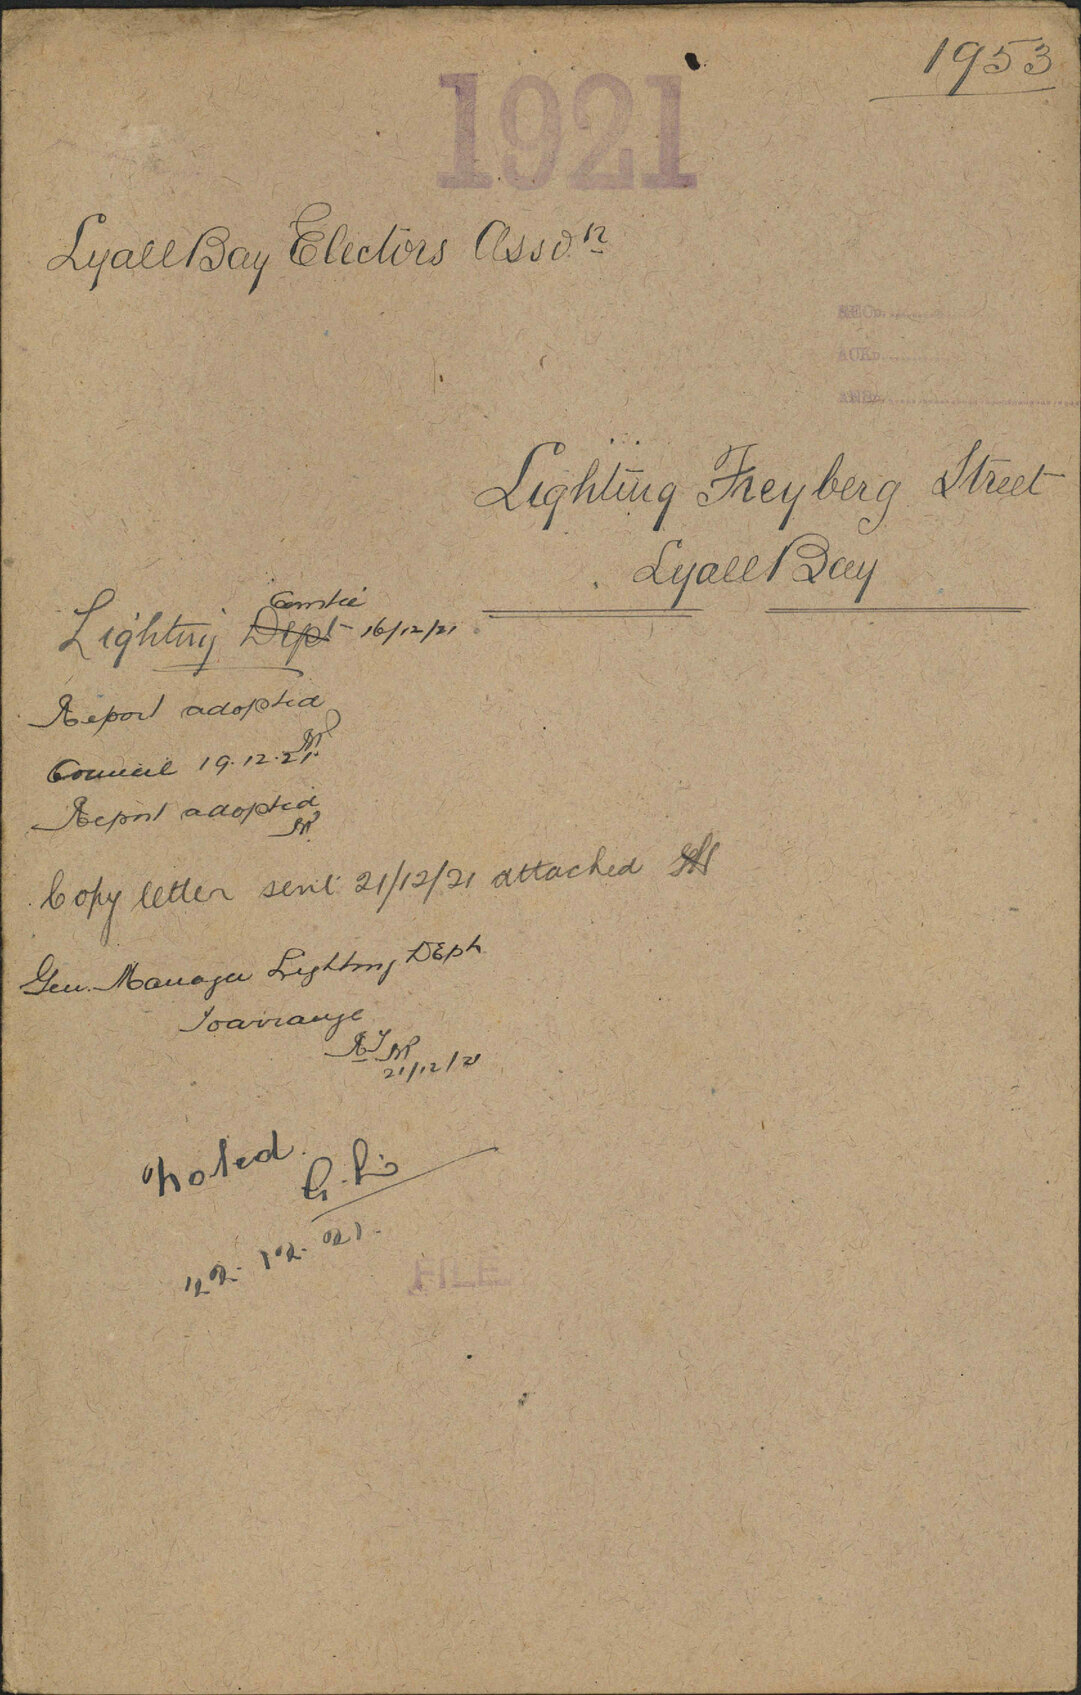 1953
1921
Lyall Bay Electors Asso.n
RECD
ACKD
Lighting Freyberg Street
Lyall Bay
Comtee
Lighting Dept 16/12/21
Report adopted
Council 19.12.21.
Report adopted
Copy letter sent 21/12/21 attached
Gen. Manager Lighting Dept
To arrange
21/12/21
Noted.
22.12.21.
FILE